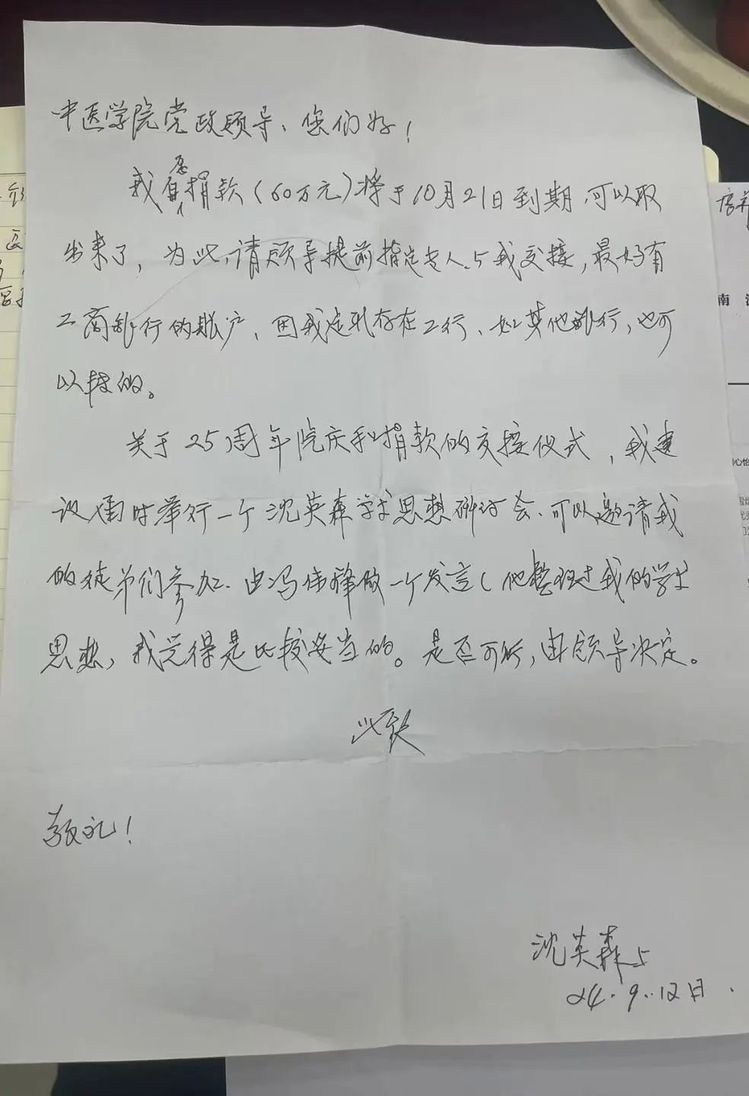 中医学院党政领导、您们好！
我自愿捐款（60万元）将于10月21日到期，可以取
出来了，为此，请领导提前指定专人与我交接，最好有
工商银行的账户，因我定期存在工行，如其他银行，也可
以转的。
关于25周年院庆和捐款的交接仪式，我建
议同时举行一个沈英森学术思想研讨会、可以邀请我
的徒弟们参加、由冯伟峰做一个发言（他整理过我的学术
思想，我觉得是比较妥当的。是否可行，由领导决定。
此致
敬礼！
沈英森上
24.9.12日.
南